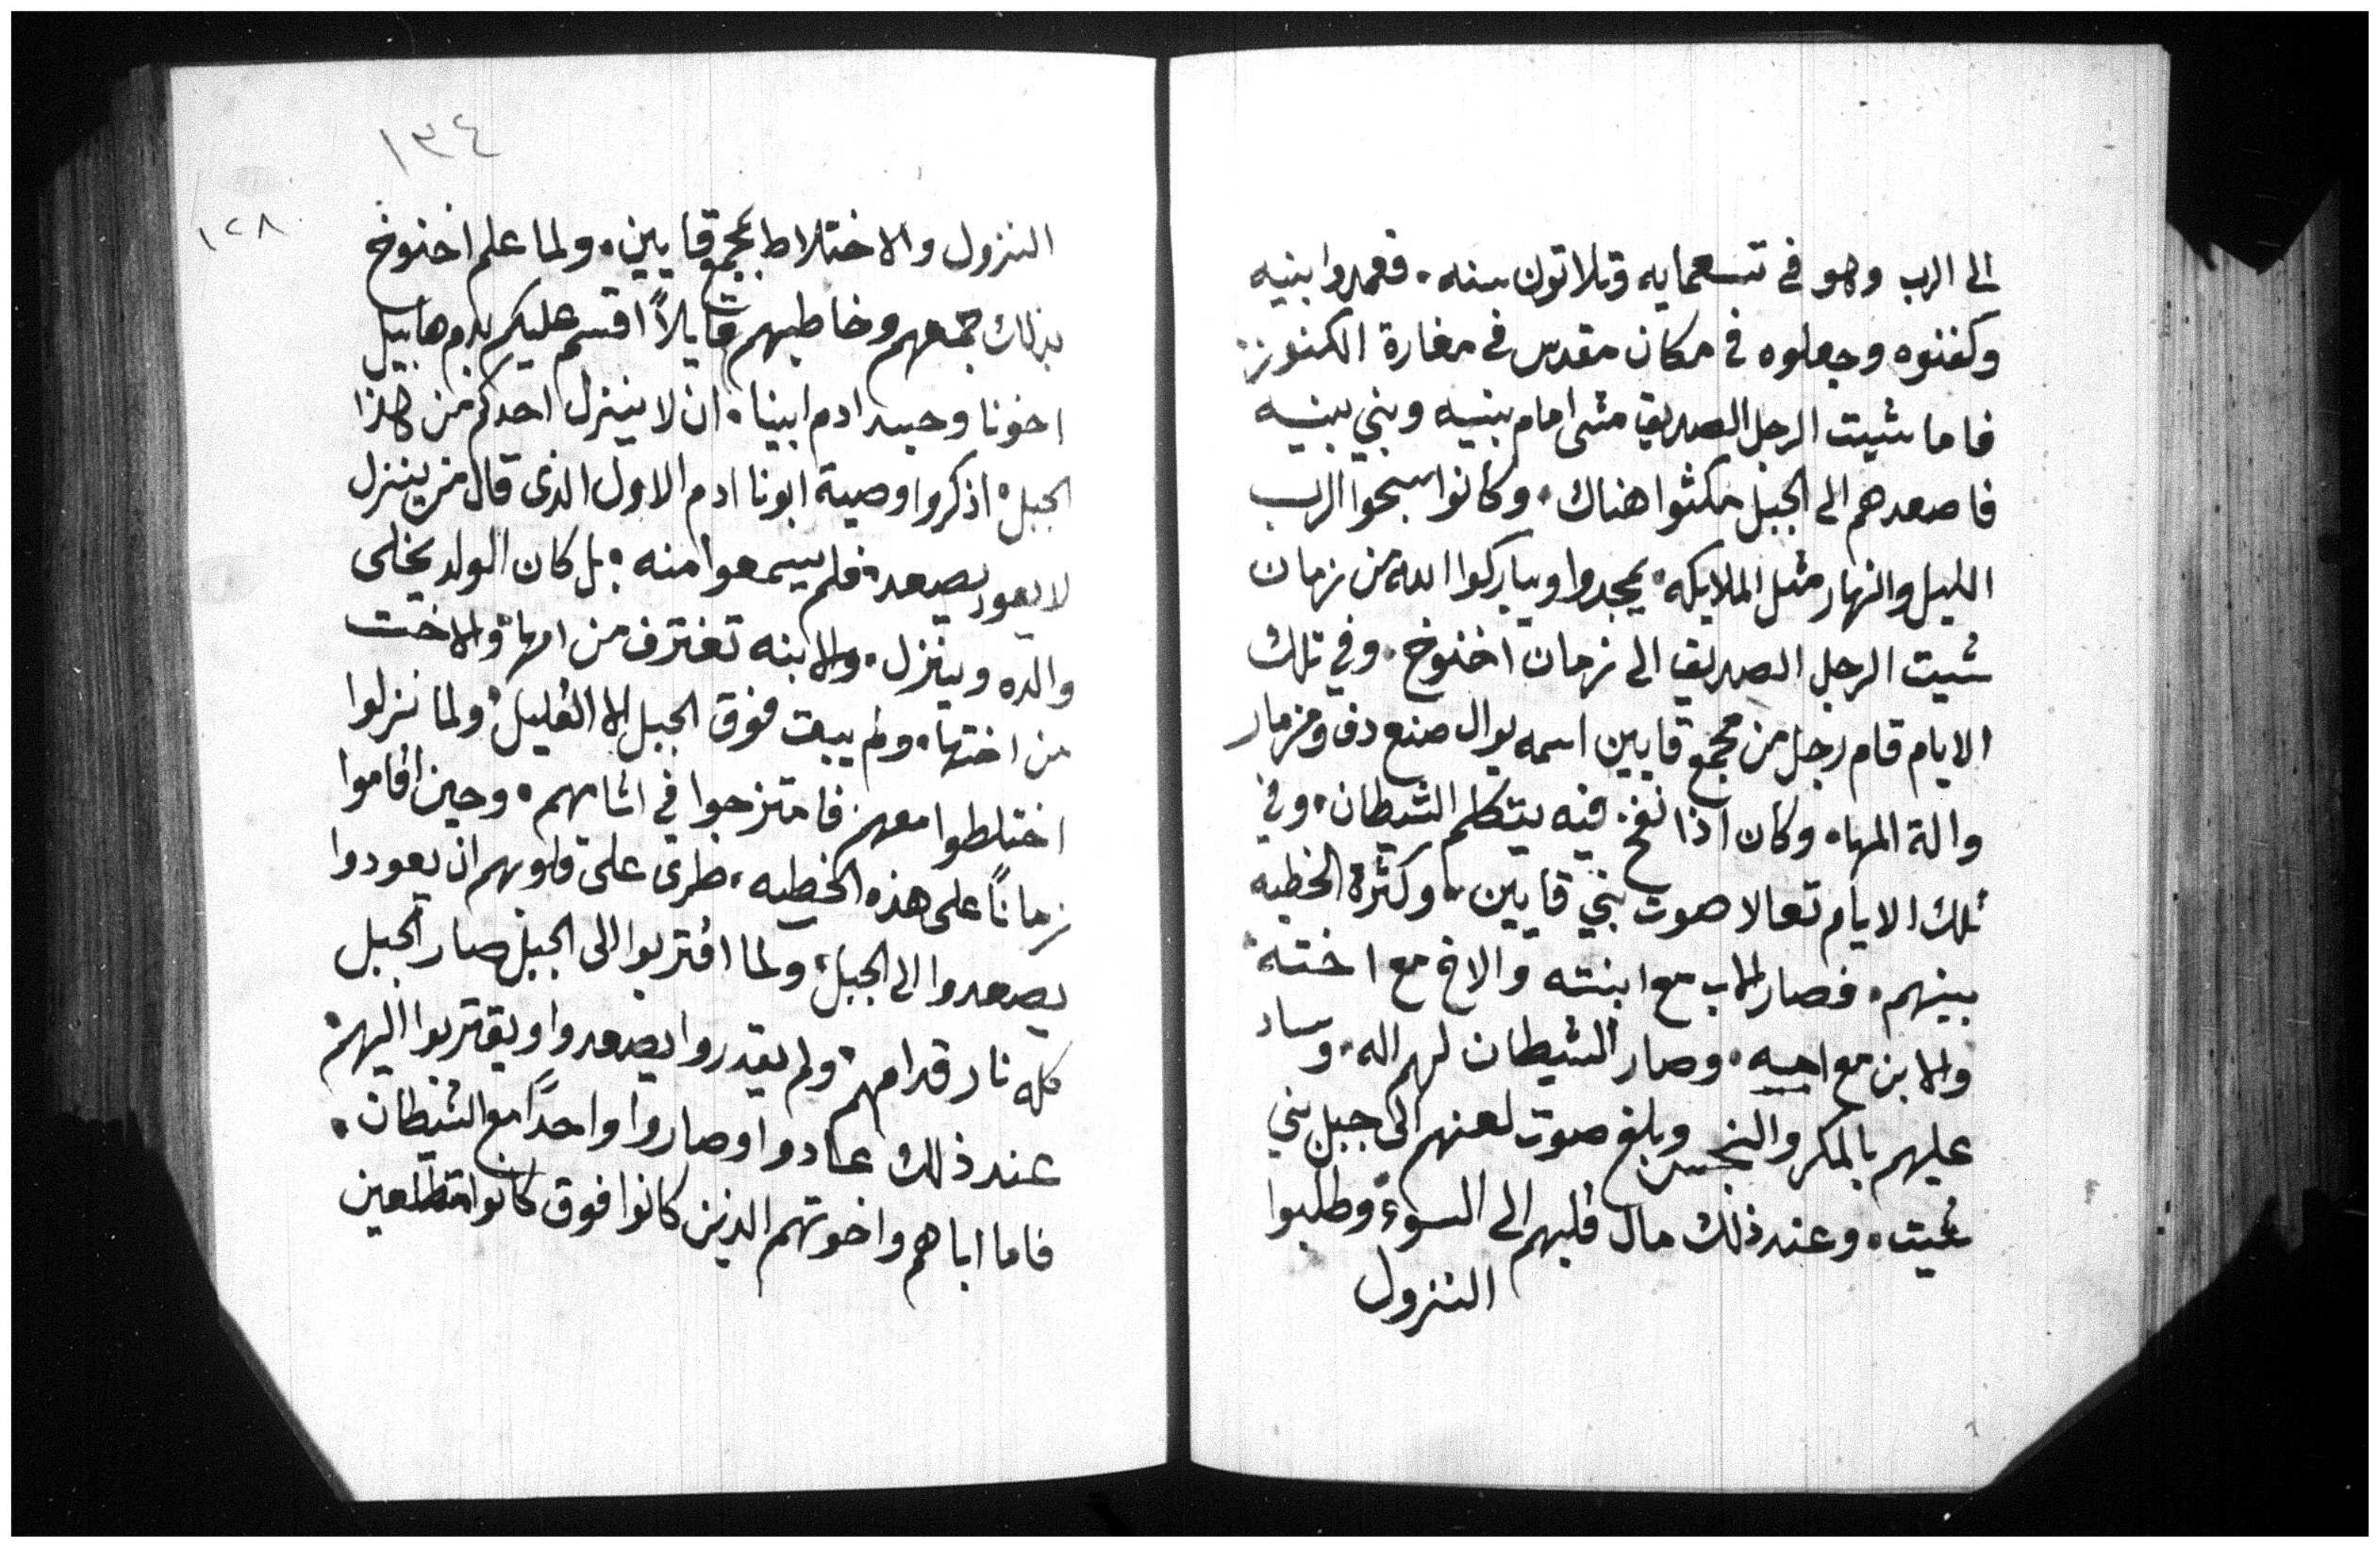 الى الرب وهو في تسعمايه وتلاتون سنه. فعمدوا بنيه
وكفنوه وجعلوه في مكان مقدس في مغارة الكنوز:
فاما شيت الرجل الصديق مشى امام بنيه وبني بنيه
فاصعدهم الى الجبل مكثوا هناك. وكانوا سبحوا الرب
الليل والنهار مثل الملايكه. يمجدوا ويباركوا الله من زمان
شيت الرجل الصديق الى زمان اخنوخ. وفي تلك
الايام قام رجل من مجمع قايين اسمه يوال صنع دف ومزمار
والة المها. وكان اذا نفخ فيه يتكلم الشيطان. وفي
تلك الايام تعالا صوت بني قايين. وكثرة الخطيه
بينهم. فصار الاب مع ابنته والاخ مع اخته.
والابن مع اميه. وصار الشيطان لهم اله. وساد
عليهم بالمكر والنجس وبلغ صوت لعنهم الى جبل بني
شيت. وعند ذلك مال قلبهم الى السوء. وطلبوا
النزول
١٣٤
١٢٨
النزول والاختلاط بمجمع قايين. ولما علم اخنوخ
بذلك جمعهم وخاطبهم قايلاً اقسم عليكم بدم هابيل
اخونا وجسد ادم ابينا. ان لا ينزل احدكم من هذا
الجبل. اذكروا وصية ابونا ادم الاول الذى قال من ينزل
لا يعود يصعد. فلم يسمعوا منه. بل كان الولد يخلى
والده وينزل. والابنه تفترق من امها. والاخت
من اختها. ولم يبقت فوق الجبل الا القليل. ولما نزلوا
اختلطوا معهم فامتزجوا في اثامهم. وحين اقاموا
زماناً على هذه الخطيه. طرى على قلوبهم ان يعودوا
يصعدوا الى الجبل. ولما اقتربوا الى الجبل صار الجبل
كله نار قدامهم. ولم يقدروا يصعدوا ويقتربوا اليهم.
عند ذلك عادوا وصاروا واحداً مع الشيطان.
فاما اباهم واخوتهم الذين كانوا فوق كانوا متطلعين